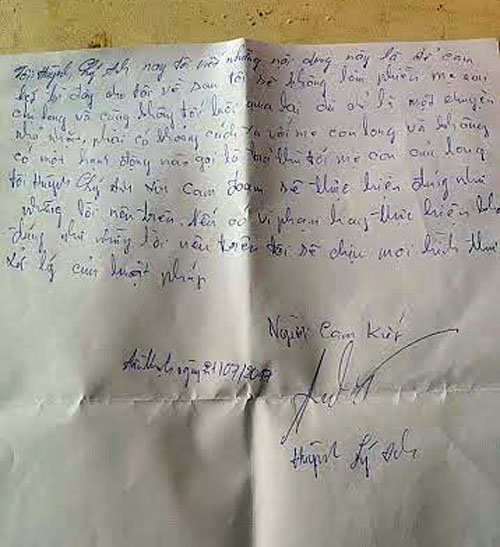 Tôi Huỳnh Lý Anh nay tôi viết những nội dung này là để cam
kết bắt đầy cho tôi về sau tôi sẽ không làm phiền mẹ con
chú long và cũng không tới lui qua lại dù chỉ là một chuyện
như nhặn, phải có khoảng cách xa với mẹ con long và không
có một hành động nào gọi là trả thù tới mẹ con của long
tôi Huỳnh Lý Anh xin cam đoan sẽ thực hiện đúng như
những lời nêu trên. Nếu có vi phạm hay thực hiện
đúng như những lời nêu trên tôi sẽ chịu mọi hình thức
xử lý của luật pháp
Người Cam Kết
ngày 21/07/2017
Huỳnh Lý Anh